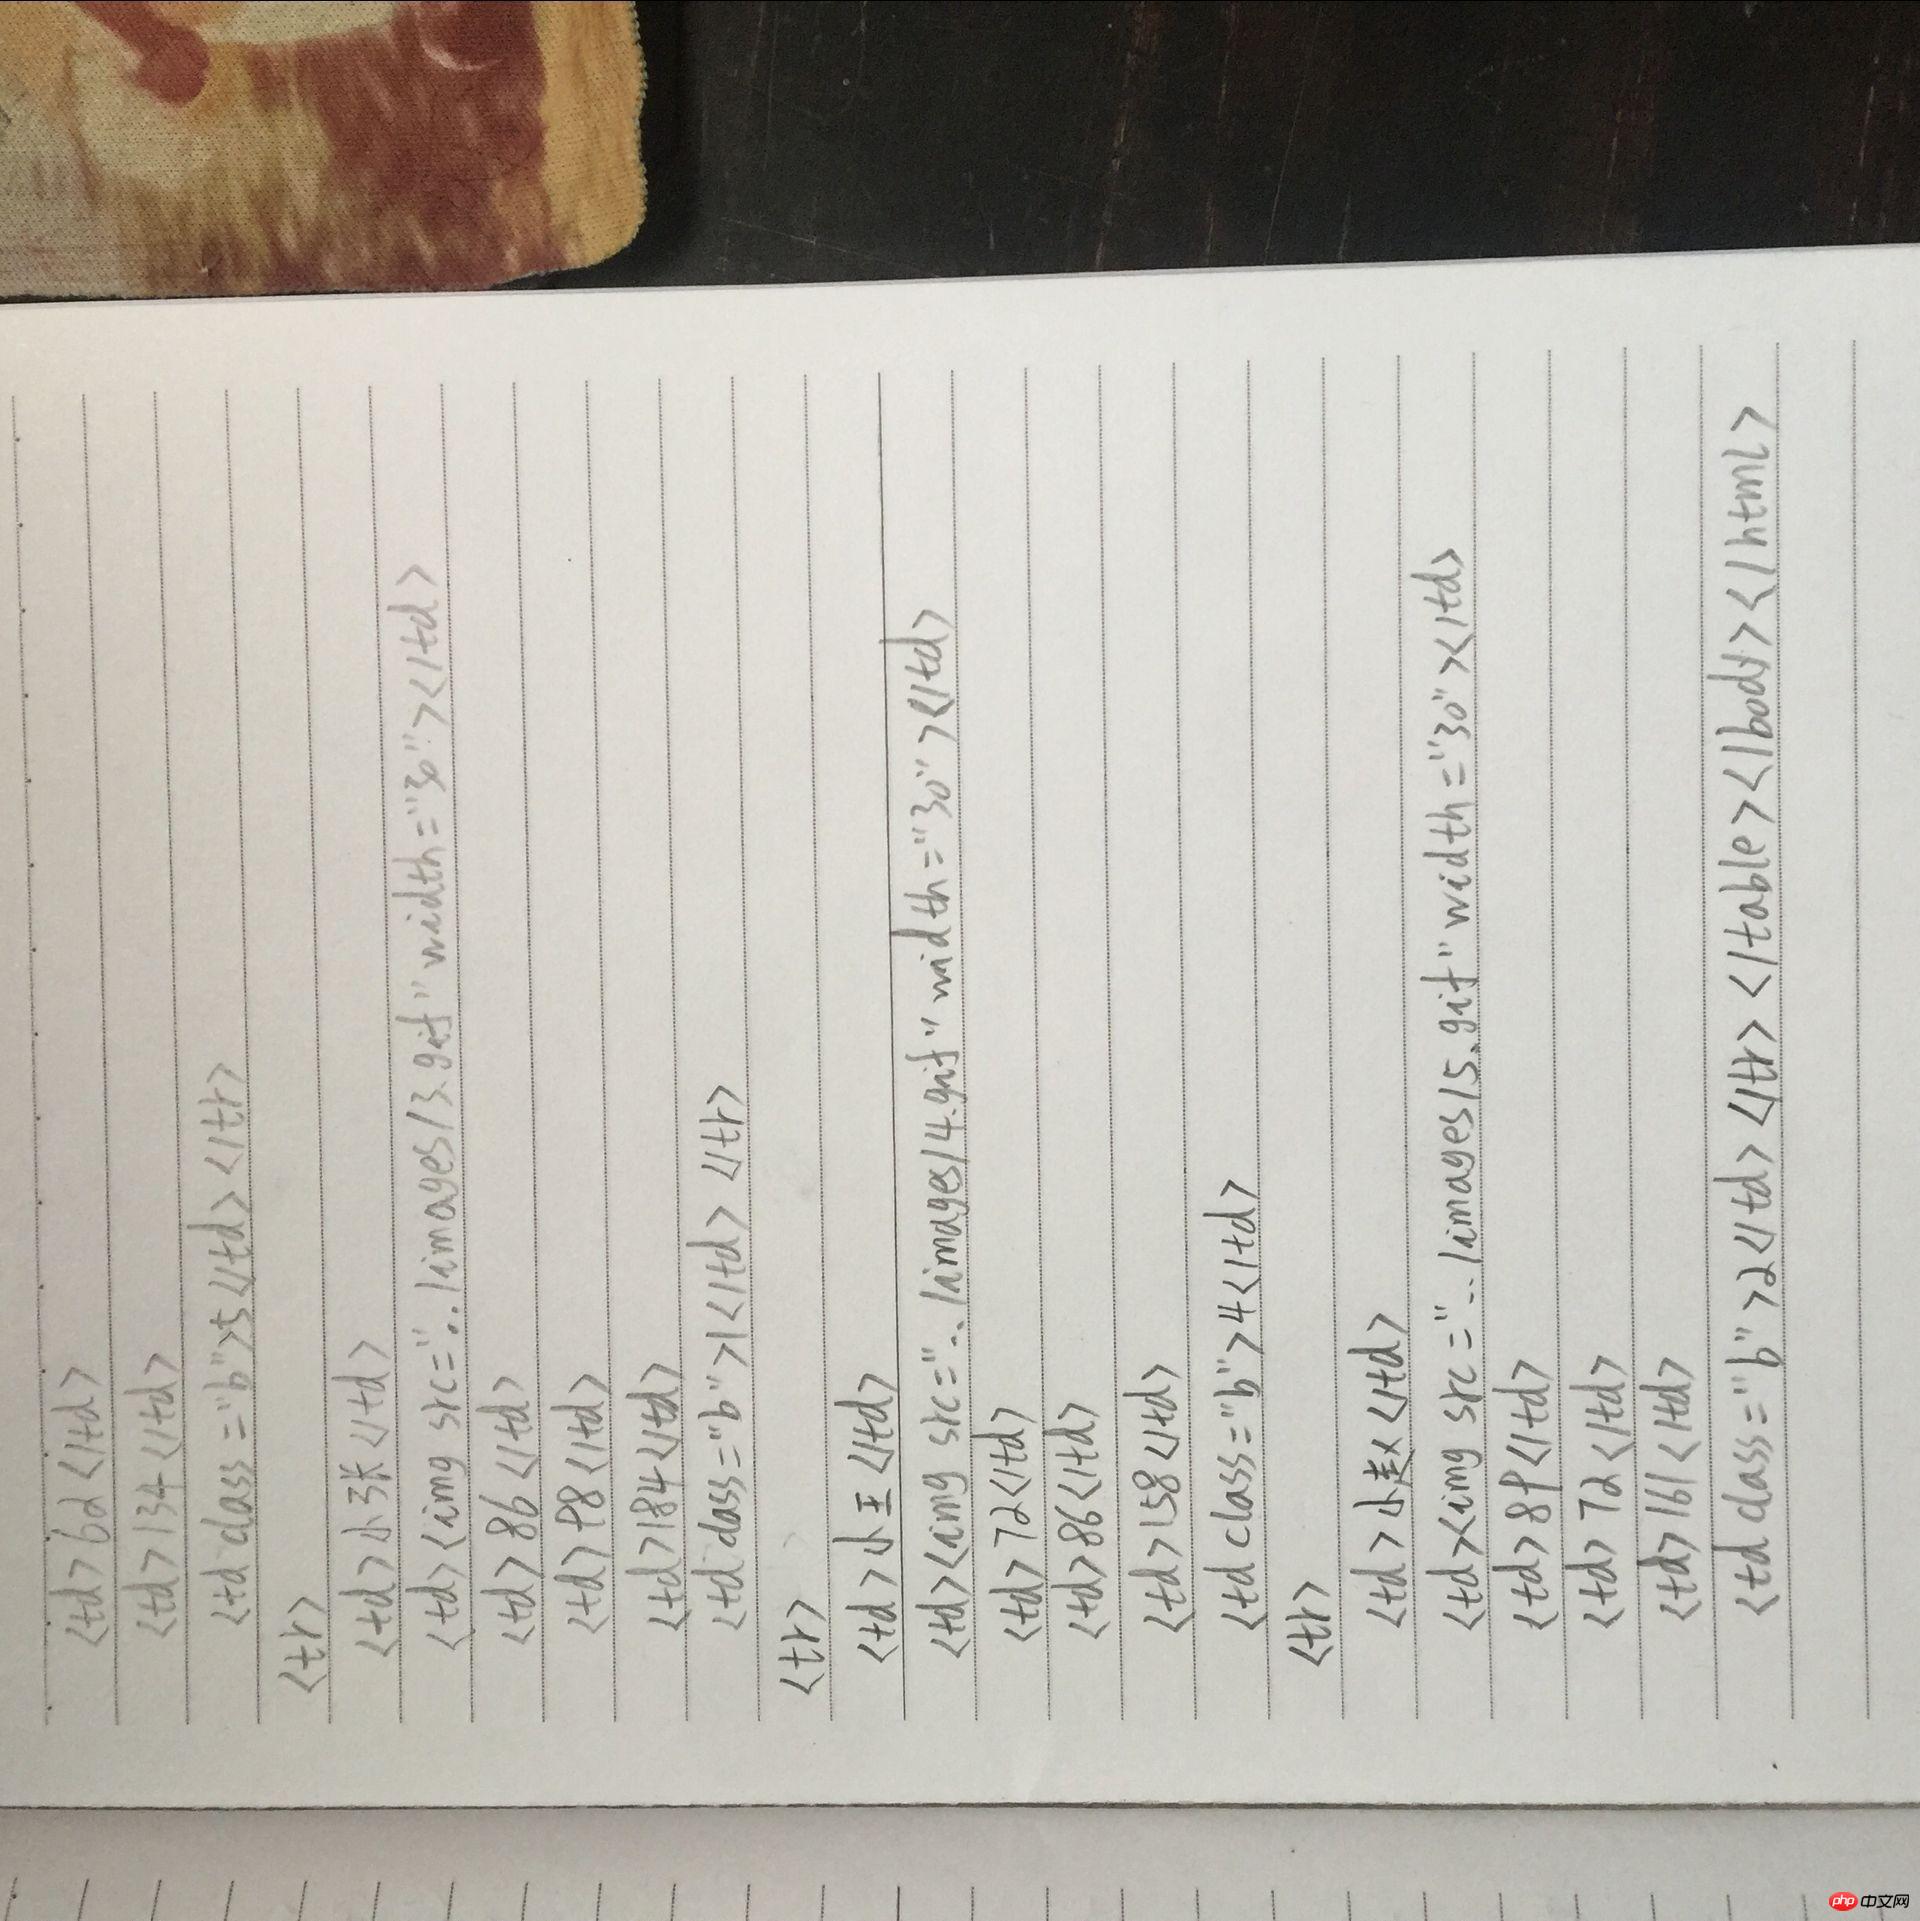 <td>62</td>
<td>134</td>
<td class="b">5</td></tr>
<tr>
<td>小张</td>
<td><img src="../images/3.gif" width="30"></td>
<td>86</td>
<td>98</td>
<td>184</td>
<td class="b">1</td></tr>
<tr>
<td>小王</td>
<td><img src="../images/4.gif" width="30"></td>
<td>72</td>
<td>86</td>
<td>158</td>
<td class="b">4</td>
<tr>
<td>小赵</td>
<td><img src="../images/5.gif" width="30"></td>
<td>89</td>
<td>72</td>
<td>161</td>
<td class="b">2</td></tr></table></body></html>
php中文网